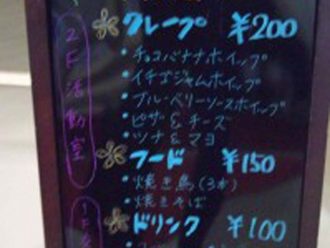 2F活動室
クレープ ¥200
・チョコバナナホイップ
・イチゴジャムホイップ
・ブルーベリーソースホイップ
・ピザ&チーズ
・ツナ&マヨ
フード ¥150
・焼き鳥(3本)
・焼きそば
ドリンク ¥100